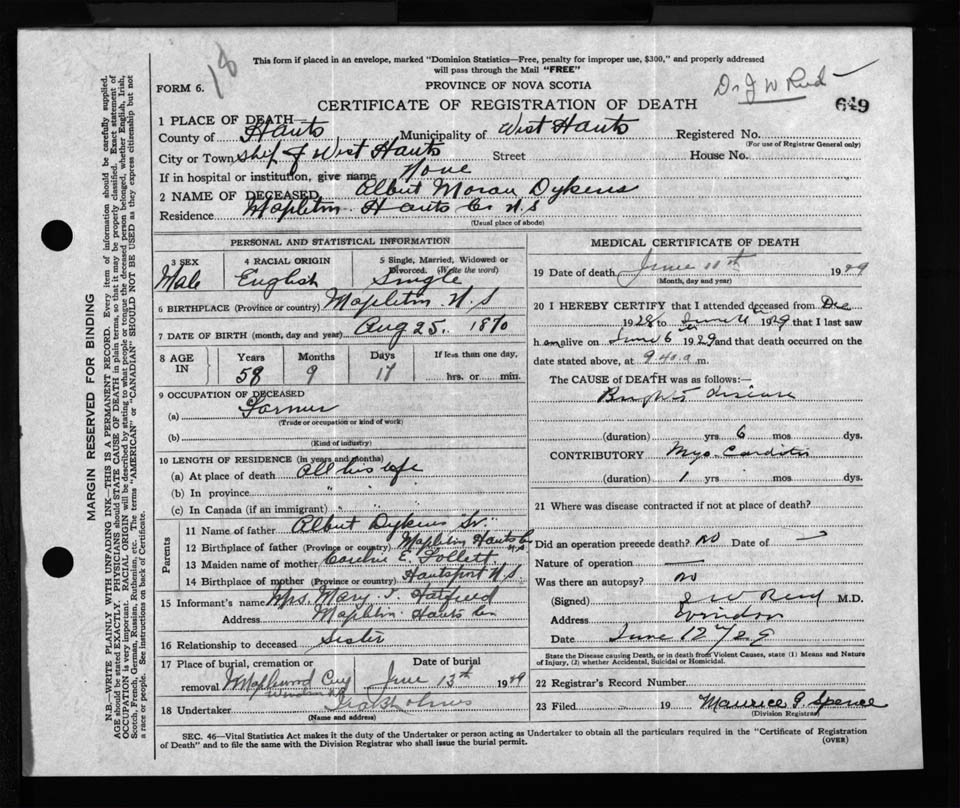 18
This form if placed in an envelope, marked "Dominion Statistics—Free, penalty for improper use, $300," and properly addressed
will pass through the Mail "FREE"
FORM 6.
PROVINCE OF NOVA SCOTIA
Dr J W Reid
CERTIFICATE OF REGISTRATION OF DEATH
649
1 PLACE OF DEATH—
County of Hants Municipality of West Hants Registered No.
(For use of Registrar General only)
City or Town West Hants Street House No.
If in hospital or institution, give name None
2 NAME OF DECEASED Albert Moran Dykens
Residence Mapleton Hants Co N.S
(Usual place of abode)
PERSONAL AND STATISTICAL INFORMATION
3 SEX 4 RACIAL ORIGIN 5 Single, Married, Widowed or Divorced. (Write the word)
Male English Single
6 BIRTHPLACE (Province or country) Mapleton N.S
7 DATE OF BIRTH (month, day and year) Aug 25. 1870
8 AGE IN Years Months Days If less than one day,
58 9 17 hrs. or min.
9 OCCUPATION OF DECEASED
(a) Farmer
(Trade or occupation or kind of work)
(b)
(Kind of industry)
10 LENGTH OF RESIDENCE (in years and months)
(a) At place of death All his life
(b) In province " "
(c) In Canada (if an immigrant) " "
Parents
11 Name of father Albert Dykens Sr.
12 Birthplace of father (Province or country) Mapleton Hants Co N.S
13 Maiden name of mother E. Follett
14 Birthplace of mother (Province or country) Hantsport N.S
15 Informant's name Mrs. Mary J. Hatfield
Address Mapleton Hants Co
16 Relationship to deceased Sister
17 Place of burial, cremation or removal Maplewood Cey Windsor N.S
Date of burial June 13th 1929
18 Undertaker Ira Holmes
(Name and address)
MEDICAL CERTIFICATE OF DEATH
19 Date of death June 11th 1929
(Month, day and year)
20 I HEREBY CERTIFY that I attended deceased from Dec
1928 to June 1929 that I last saw
h im alive on June 6 1929 and that death occurred on the
date stated above, at 9 40 a m.
The CAUSE of DEATH was as follows:—
Brights disease
(duration) yrs 6 mos dys.
CONTRIBUTORY Myo Carditis
(duration) 1 yrs mos dys.
21 Where was disease contracted if not at place of death?
Did an operation precede death? no Date of
Nature of operation —
Was there an autopsy? no
(Signed) J W Reid M.D.
Address Windsor
Date June 12th/29
State the Disease causing Death, or in death from Violent Causes, state (1) Means and Nature
of Injury, (2) whether Accidental, Suicidal or Homicidal.
22 Registrar's Record Number
23 Filed 19 Maurice G. Spence
(Division Registrar)
SEC. 46—Vital Statistics Act makes it the duty of the Undertaker or person acting as Undertaker to obtain all the particulars required in the "Certificate of Registration
of Death" and to file the same with the Division Registrar who shall issue the burial permit.
(OVER)
MARGIN RESERVED FOR BINDING
N.B.—WRITE PLAINLY WITH UNFADING INK—THIS IS A PERMANENT RECORD. Every item of information should be carefully supplied.
AGE should be stated EXACTLY. PHYSICIANS should STATE CAUSE OF DEATH in plain terms, so that it may be properly classified. Exact statement of
OCCUPATION is very important. RACIAL ORIGIN will be described by stating to what people or tongue the deceased person belonged, whether English, Irish,
Scotch, French, German, Russian, Ruthenian, etc. The terms "AMERICAN" or "CANADIAN" SHOULD NOT BE USED as they express citizenship but not
a race or people. See instructions on back of Certificate.